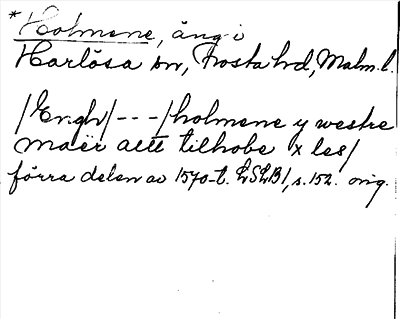 *Holmene, äng i
Harlösa sn, Frosta hd, Malm. l.
/Engh/ - - - /holmene y westre
maer alt tilhobe x les/
förra delen av 1570-t. LSLB1, s.152. orig.